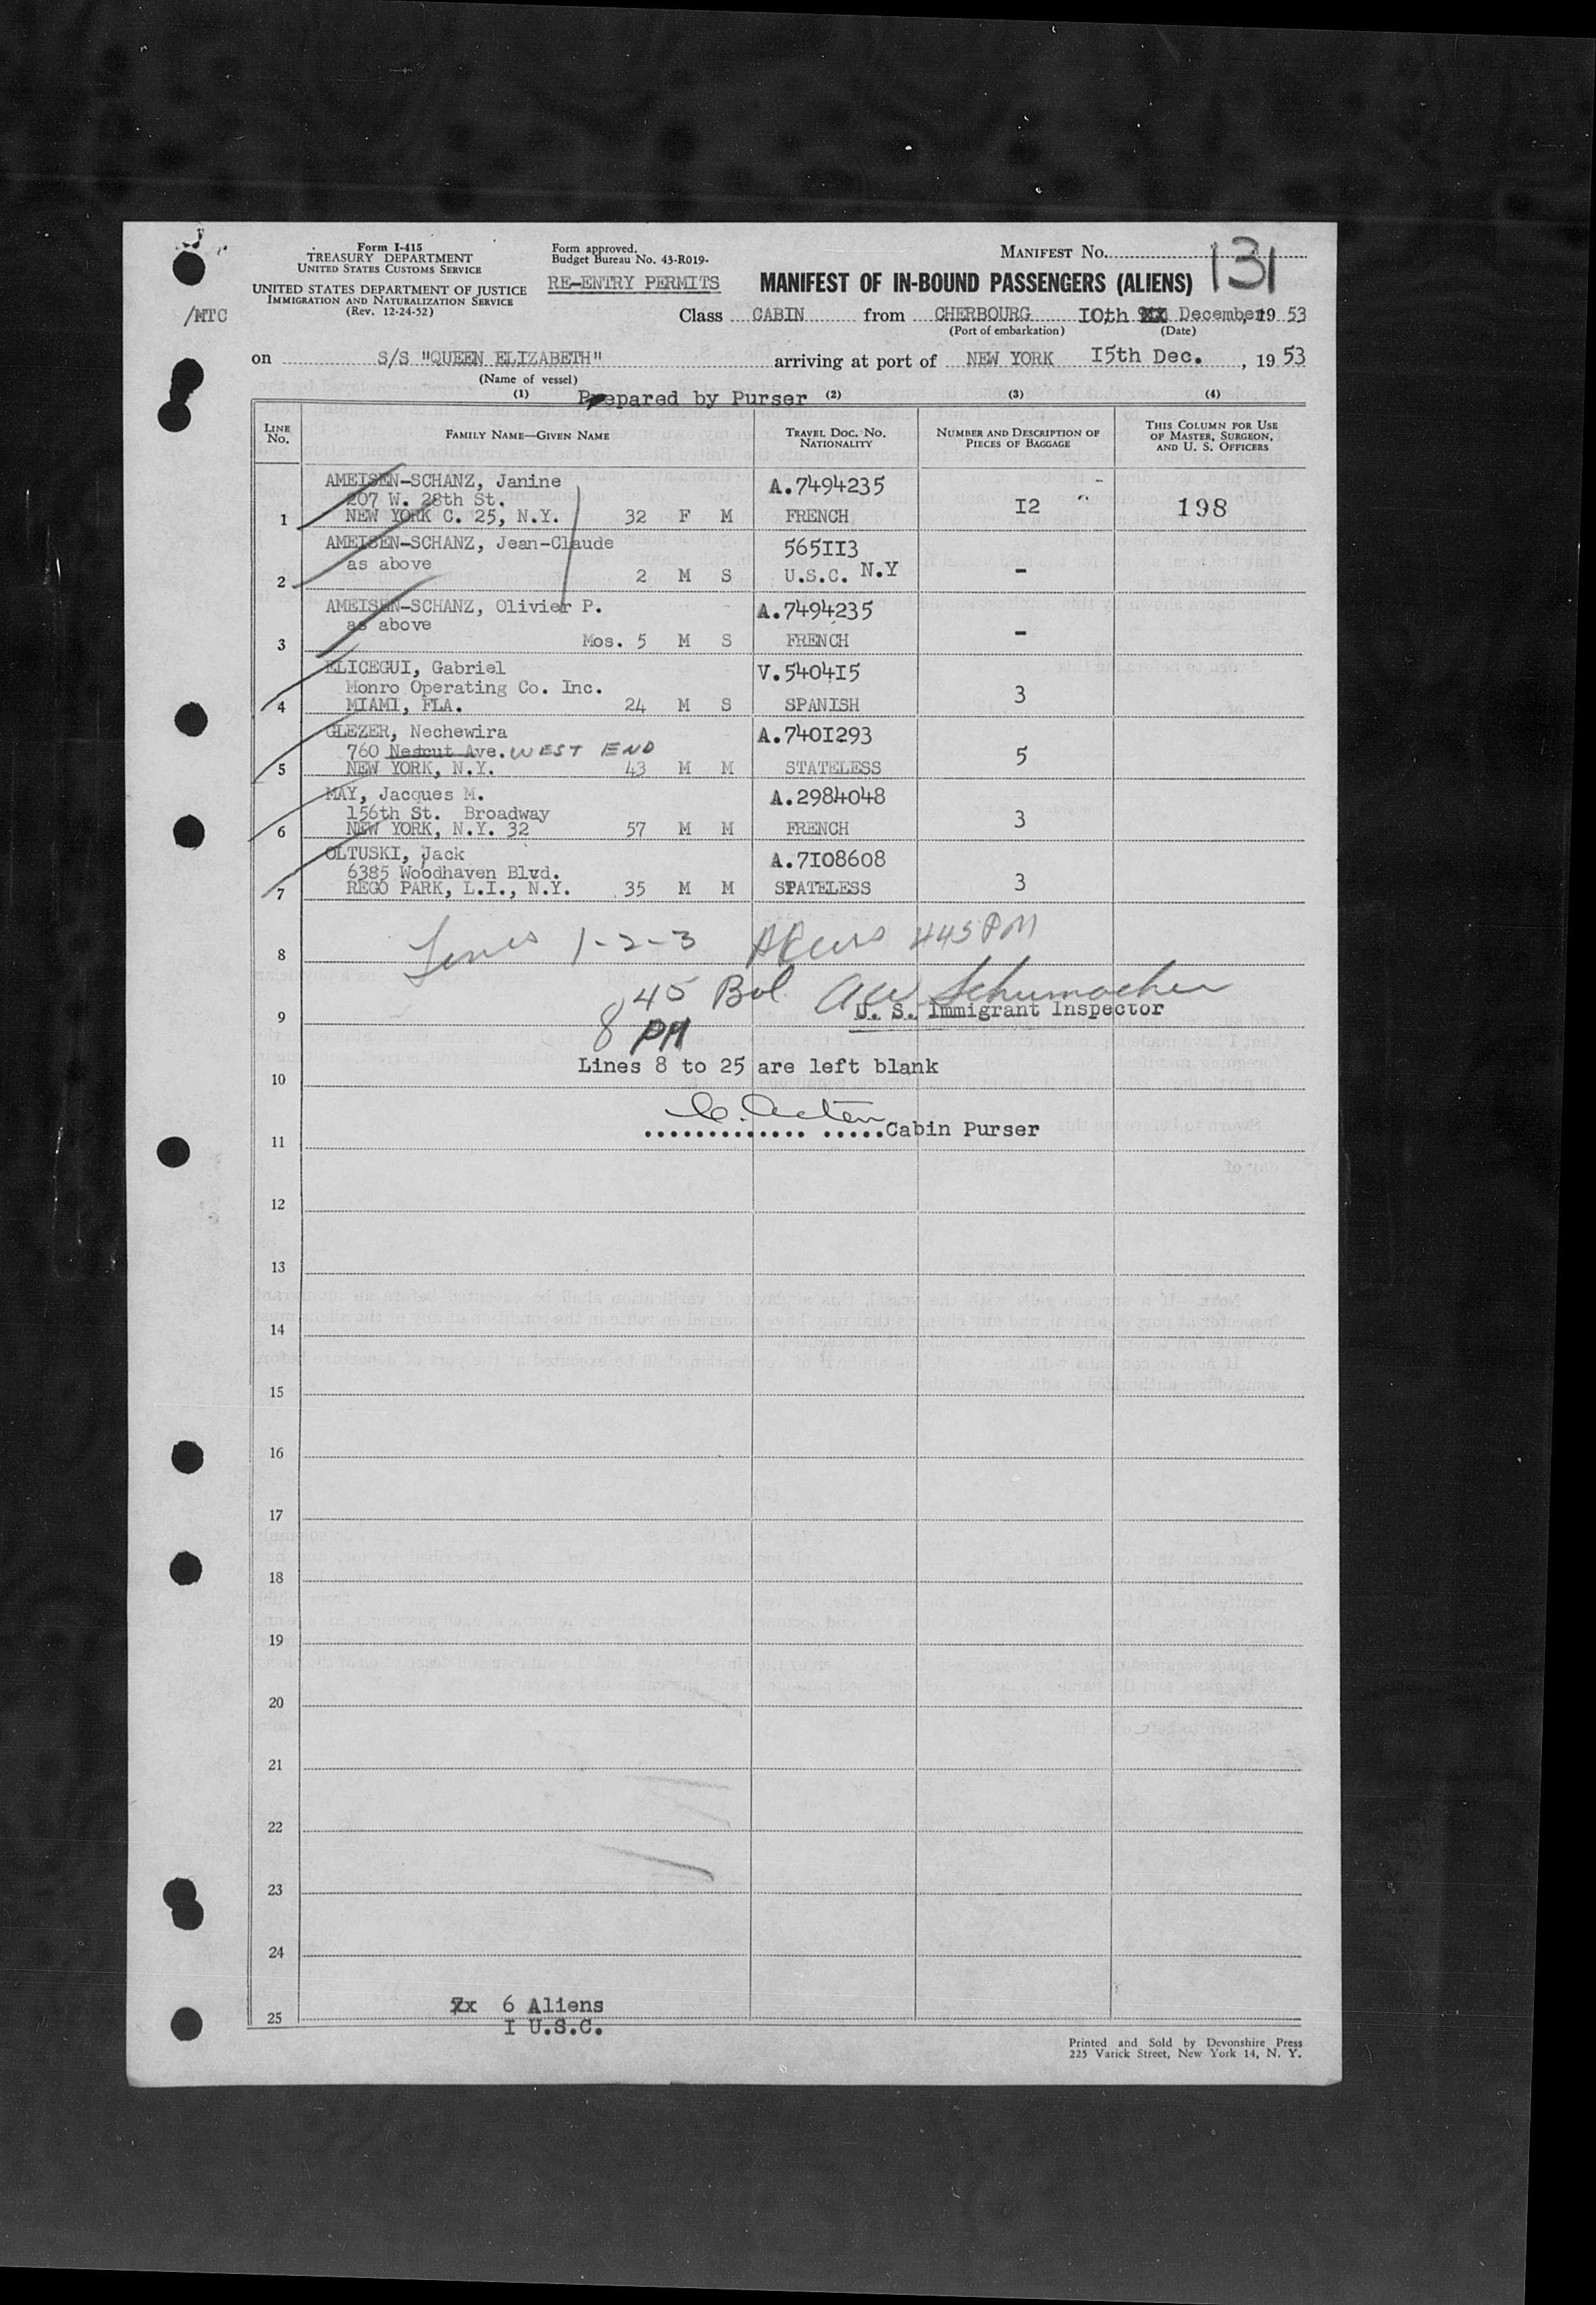 Form I-415
TREASURY DEPARTMENT
UNITED STATES CUSTOMS SERVICE
UNITED STATES DEPARTMENT OF JUSTICE
IMMIGRATION AND NATURALIZATION SERVICE
(Rev. 12-24-52)
/MTC
Form approved.
Budget Bureau No. 43-R019-
RE-ENTRY PERMITS
MANIFEST NO. 131
MANIFEST OF IN-BOUND PASSENGERS (ALIENS)
Class CABIN from CHERBOURG 10th December, 1953
(Port of embarkation) (Date)
on S/S "QUEEN ELIZABETH" arriving at port of NEW YORK I5th Dec. , 19 53
(Name of vessel)
Prepared by Purser
(1) (2) (3) (4)
LINE NO. FAMILY NAME—GIVEN NAME TRAVEL DOC. NO. NATIONALITY NUMBER AND DESCRIPTION OF PIECES OF BAGGAGE THIS COLUMN FOR USE OF MASTER, SURGEON, AND U. S. OFFICERS
AMEISEN-SCHANZ, Janine A.7494235
207 W. 28th St.
1 NEW YORK C. 25, N.Y. 32 F M FRENCH I2 198
AMEISEN-SCHANZ, Jean-Claude 565II3
as above
2 2 M S U.S.C. N.Y -
AMEISEN-SCHANZ, Olivier P. A.7494235
as above
3 Mos. 5 M S FRENCH -
ELICEGUI, Gabriel V.5404I5
Monro Operating Co. Inc.
4 MIAMI, FLA. 24 M S SPANISH 3
GLEZER, Nechewira A.740I293
760 Nestcut Ave. WEST END
5 NEW YORK, N.Y. 43 M M STATELESS 5
MAY, Jacques M. A.2984048
156th St. Broadway
6 NEW YORK, N.Y. 32 57 M M FRENCH 3
OLTUSKI, Jack A.7I08608
6385 Woodhaven Blvd.
7 REGO PARK, L.I., N.Y. 35 M M STATELESS 3
8 Lines 1-2-3 445 PM
8 45 PM Bol. AW Schumacher
9 U. S. Immigrant Inspector
Lines 8 to 25 are left blank
10
11 Cabin Purser
12
13
14
15
16
17
18
19
20
21
22
23
24
7x 6 Aliens
25 I U.S.C.
Printed and Sold by Devonshire Press
225 Varick Street, New York 14, N. Y.